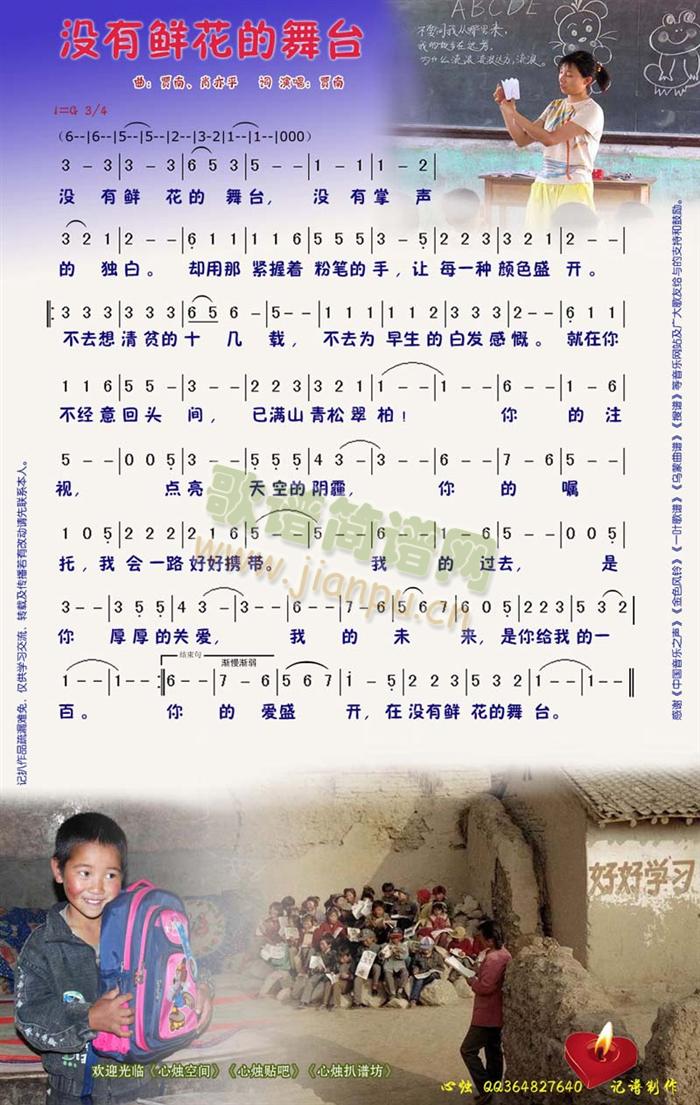 没有鲜花的舞台
曲：贾南、肖亦乎 词 演唱：贾南
ABCDE
不要问我从哪里来，
我的故乡在远方
为什么流浪
1=G 3/4
(6--|6--|5--|5--|2--|3-2|1--|1--|000)
3 - 3|3 - 3|6 5 3|5 - -|1 - 1|1 - 2|
没 有 鲜 花 的 舞台， 没 有 掌 声
3 2 1|2 - -|6 1 1|1 1 6|5 5 5|3 - 5|2 2 3|3 2 1|2 - -|
的 独白。 却用那 紧握着 粉笔的 手，让 每一种 颜色盛 开。
3 3 3|3 3 3|6 5 6 -|5 - -|1 1 1|1 1 2|3 3 3|2 - -|6 1 1|
不去想 清贫的 十 几 载， 不去为 早生的 白发感 慨。 就在你
1 1 6|5 5 - |3 - -|2 2 3|3 2 1|1 - -|1 - -|6 - -|1 - 6|
不经意 回头 间， 已满山 青松翠 柏！ 你 的 注
5 - -|0 0 5|3 - -|5 5 5|4 3 -|3 - -|6 - -|7 - 6|5 - -|
视， 点 亮 天空的 阴霾， 你 的 嘱
1 0 5|2 2 2|2 1 6|5 - -|5 - -|6 - -|1 - 6|5 - -|0 0 5|
托，我 会一路 好好携 带。 我 的 过去， 是
3 - -|3 5 5|4 3 -|3 - -|6 - -|7 - 6|5 6 7|6 0 5|2 2 3|5 3 2|
你 厚 厚的 关爱， 我 的 未 来，是 你给 我的一
结束句
渐慢渐弱
1 - -|1 - -:|6 - -|7 - 6|5 6 7|1 - 5|2 2 3|5 3 2|1 - -|1 - -||
百。 你 的 爱盛 开，在 没有鲜 花的舞 台。
歌谱简谱网
www.jianpu.cn
记扒作品疏漏难免，仅供学习交流、转载及传播若有改动请先联系本人。
感谢《中国音乐之声》《金色风铃》《一叶歌谱》《乌蒙曲谱》《搜谱》等音乐网站及广大歌友给与的支持和鼓励。
好好学习
欢迎光临《心烛空间》《心烛贴吧》《心烛扒谱坊》
心烛 QQ364827640 记谱制作